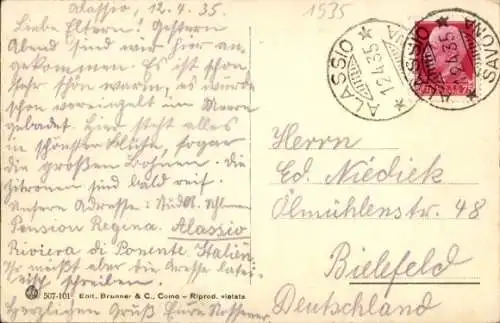 Alassio, 12.4.35.
1535
Liebe Eltern! Gestern
Abend sind wir hier an-
gekommen. Es ist schon
sehr schön warm, es wurde
schon vereinzelt im Meere
gebadet. Hier steht alles
in schönster Blüte, sogar
die großen Bohnen. Die
Zitronen sind bald reif.
Unsere Adresse:
Pension Regina. Alassio
Riviera di Ponente. Italien.
Ihr müßt aber die Adresse latei-
nisch schreiben.
Herzlichen Gruß Eure
507-101 Edit. Brunner & C., Como - Riprod. vietata
ALASSIO
12.4.35
* ALASSIO * SAVONA
12.4.35
Herrn
Ed. Niediek
Ölmühlenstr. 48
Bielefeld
Deutschland